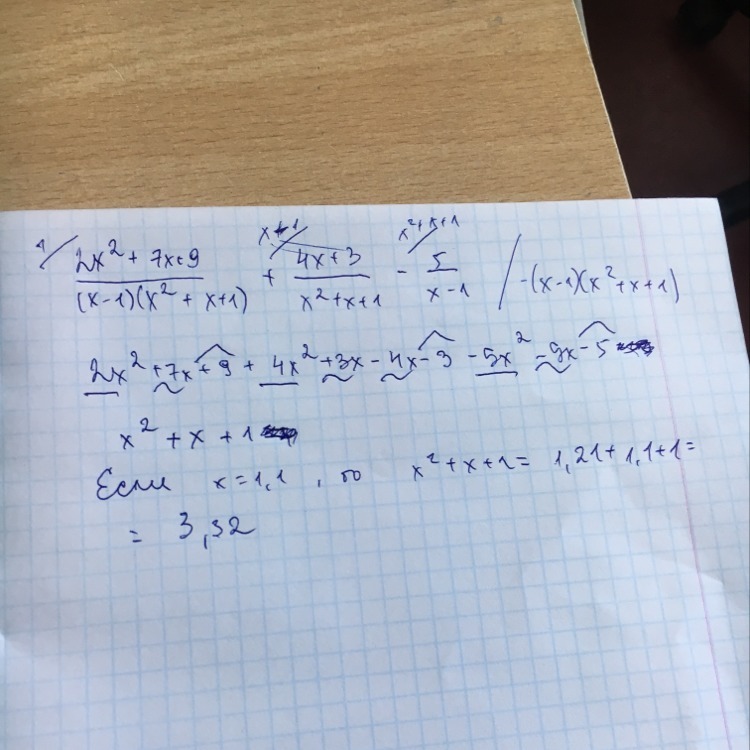 1/ (2x² + 7x+9)/((x-1)(x² + x+1)) + (4x+3)/(x²+x+1) - 5/(x-1) / ·(x-1)(x²+x+1)
x-1 x²+x+1
2x² + 7x + 9 + 4x² + 3x - 4x - 3 - 5x² - 5x - 5
x² + x + 1
Если x = 1,1 , то x² + x + 1 = 1,21 + 1,1 + 1 =
= 3,32